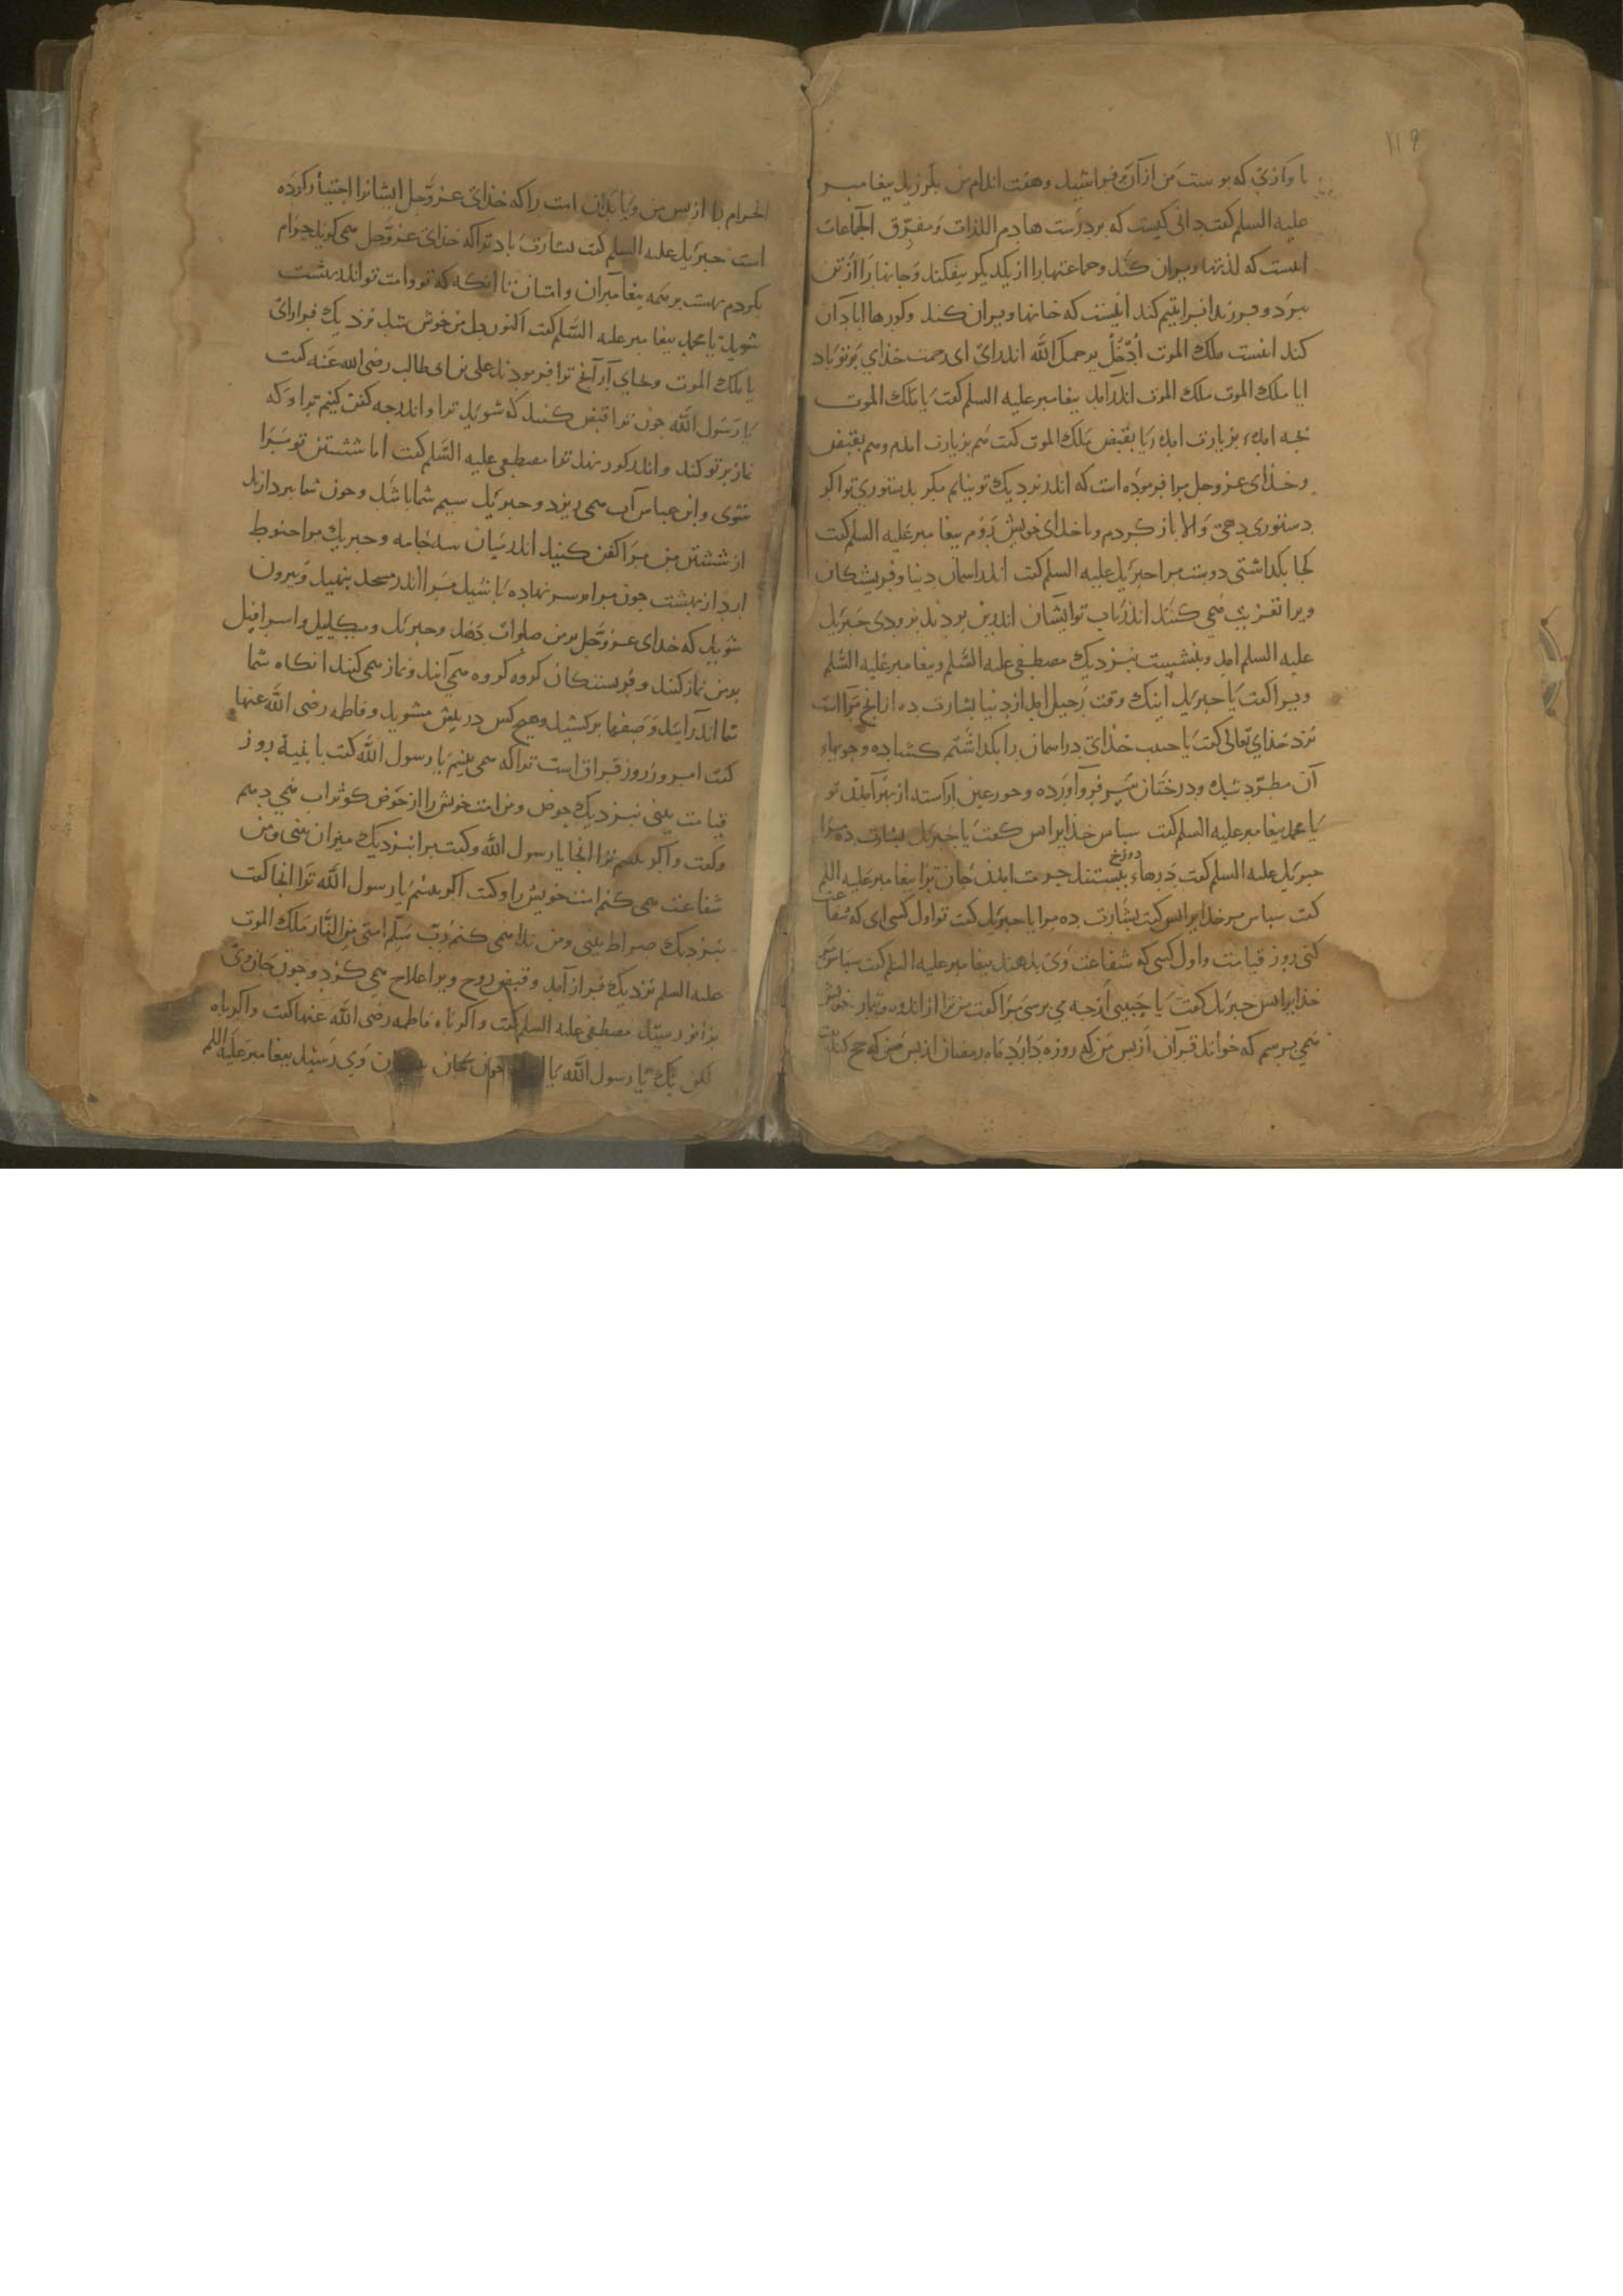 ۱۱۹
با وازی که پوست من از آن فراشید و هفت اندام من بلرزید پیغامبر
علیه السلم کفت دانی کیست که بر درست هادم اللذات ومفرّق الجماعات
اینست که لذتها ویران کند وجماعتها را از یکدیکر بیفکند وجانها را از تن
ببرد وفرزندانرا یتیم کند اینست که خانها ویران کند وکورها ابادان
کند اینست ملک الموت اُدْخُلْ یرحمک اللّه اندرای ای رحمت خذای بر تو باد
ایا ملک الموت ملک الموت اندر آمد پیغامبر علیه السلم کفت یا ملک الموت
بجه امدۀ بزیارت امدۀ یا بقبض ملک الموت کفت هم بزیارت امدم وهم بقبض
وخذای عزوجل مرا فرموذه است که اندر نزدیک تو نیایم مکر بدستوری تو اکر
دستوری دهی والا باز کردم وبا خدای خویش روم پیغامبر علیه السلم کفت
کجا بکداشتی دوست مرا جبرئیل علیه السلم کفت اندر اسمان دنیا وفریشتکان
ویرا تعزیت همی کنند اندر باب تو ایشان اندرین بودند بزودی جبرئیل
علیه السلم امد وبنشست بنزدیک مصطفی علیه السّلم وپیغامبر علیه السّلم
ویرا کفت یا جبرئیل اینک وقت رحیل امد از دنیا بشارت ده از انج مرا است
نزد خذای تعالی کفت یا حبیب خذای در اسمان را بکداشتم کشاده وجویهاء
آن مطرّد شده ودرختان سر فرو آورده وحور عین اراسته از بهر آمدن تو
یا محمد پیغامبر علیه السلم کفت سپاس خذایرا پس کفت یا جبرئیل بشارت ده مرا
جبرئیل علیه السلم کفت درهاء دوزخ ببستند حرمت امدن جان ترا پیغامبر علیه السلم
کفت سپاس مر خدایرا پس کفت بشارت ده مرا یا جبرئیل کفت تو اول کسی ای که شفاعت
کنی روز قیامت واول کسی که شفاعت وی بدهند پیغامبر علیه السلم کفت سپاس مر
خذایرا پس جبرئیل کفت یا حبیبی از جه می پرسی مرا کفت من ترا از اندوه وتیمار خویش
همی پرسم که خواند قرآن از پس من که روزه دارد ماه رمضان از پس من که حج کند بیت
الحرام را از پس من ویا بدان امت را که خذای عزّوجّل ایشانرا اجتبا کرده
است جبرئیل علیه السلم کفت بشارت باد ترا که خذای عزّوجّل همی کوید حرام
بکردم بهشت بر همه پیغامبران وامتان تا انکه که تو وامت تو اندر بهشت
شوید یا محمد پیغامبر علیه السّلم کفت اکنون دل من خوش شد نزدیک فراز آی
یا ملک الموت وبجای آر آنج ترا فرمودند علی بن ابی طالب رضی الله عَنه کفت
یا رسول اللّه جون ترا قبض کنند که شوید ترا واندر جه کفن کنیم ترا وکه
نماز بر تو کند واندر کور نهد ترا مصطفی علیه السّلم کفت اما شستن تو مرا
شوی وابن عباس آب همی ریزد وجبرئیل سیم شما باشد وجون شما بپردازید
از شستن من مرا کفن کنید اندر میان سه جامه وجبرئیل مرا حنوط
ارد از بهشت جون مرا بر سریر نهاده باشید مرا اندر مسجد بنهید وبیرون
شوید که خدای عزّوجّل بر من صلوات دهد وجبرئیل ومیکاییل واسرافیل
بر من نماز کنند وفریستکان کروه کروه همی آیند ونماز همی کنند انکاه شما
شما اندر آیید وصفها برکشید وهیج کس در پیش مشوید وفاطمه رضی اللّه عنها
کفت امروز روز فراق است ترا که همی بینم یا رسول اللّه کفت یا بنیة روز
قیامت بینی بنزدیک حوض ومن امت خویش را از حوض کوثر اب همی دهم
وکفت واکر نبینم ترا انجا یا رسول اللّه وکفت مرا بنزدیک میزان بینی ومن
شفاعت همی کنم امت خویش را وکفت اکر نبینم یا رسول اللّه ترا انجا کفت
بنزدیک صراط بینی ومن ندا همی کنم ربّ سَلِّم امتی مِن النّار ملک الموت
علیه السلم نزدیک فراز آمد وقبض روح ویرا علاج همی کرد وجون جان وی
بزانو رسید مصطفی علیه السلم کفت واکرباه فاطمه رضی اللّه عنها کفت واکرباه
یا رسول اللّه جون جان وی رسید پیغامبر علیه السلم